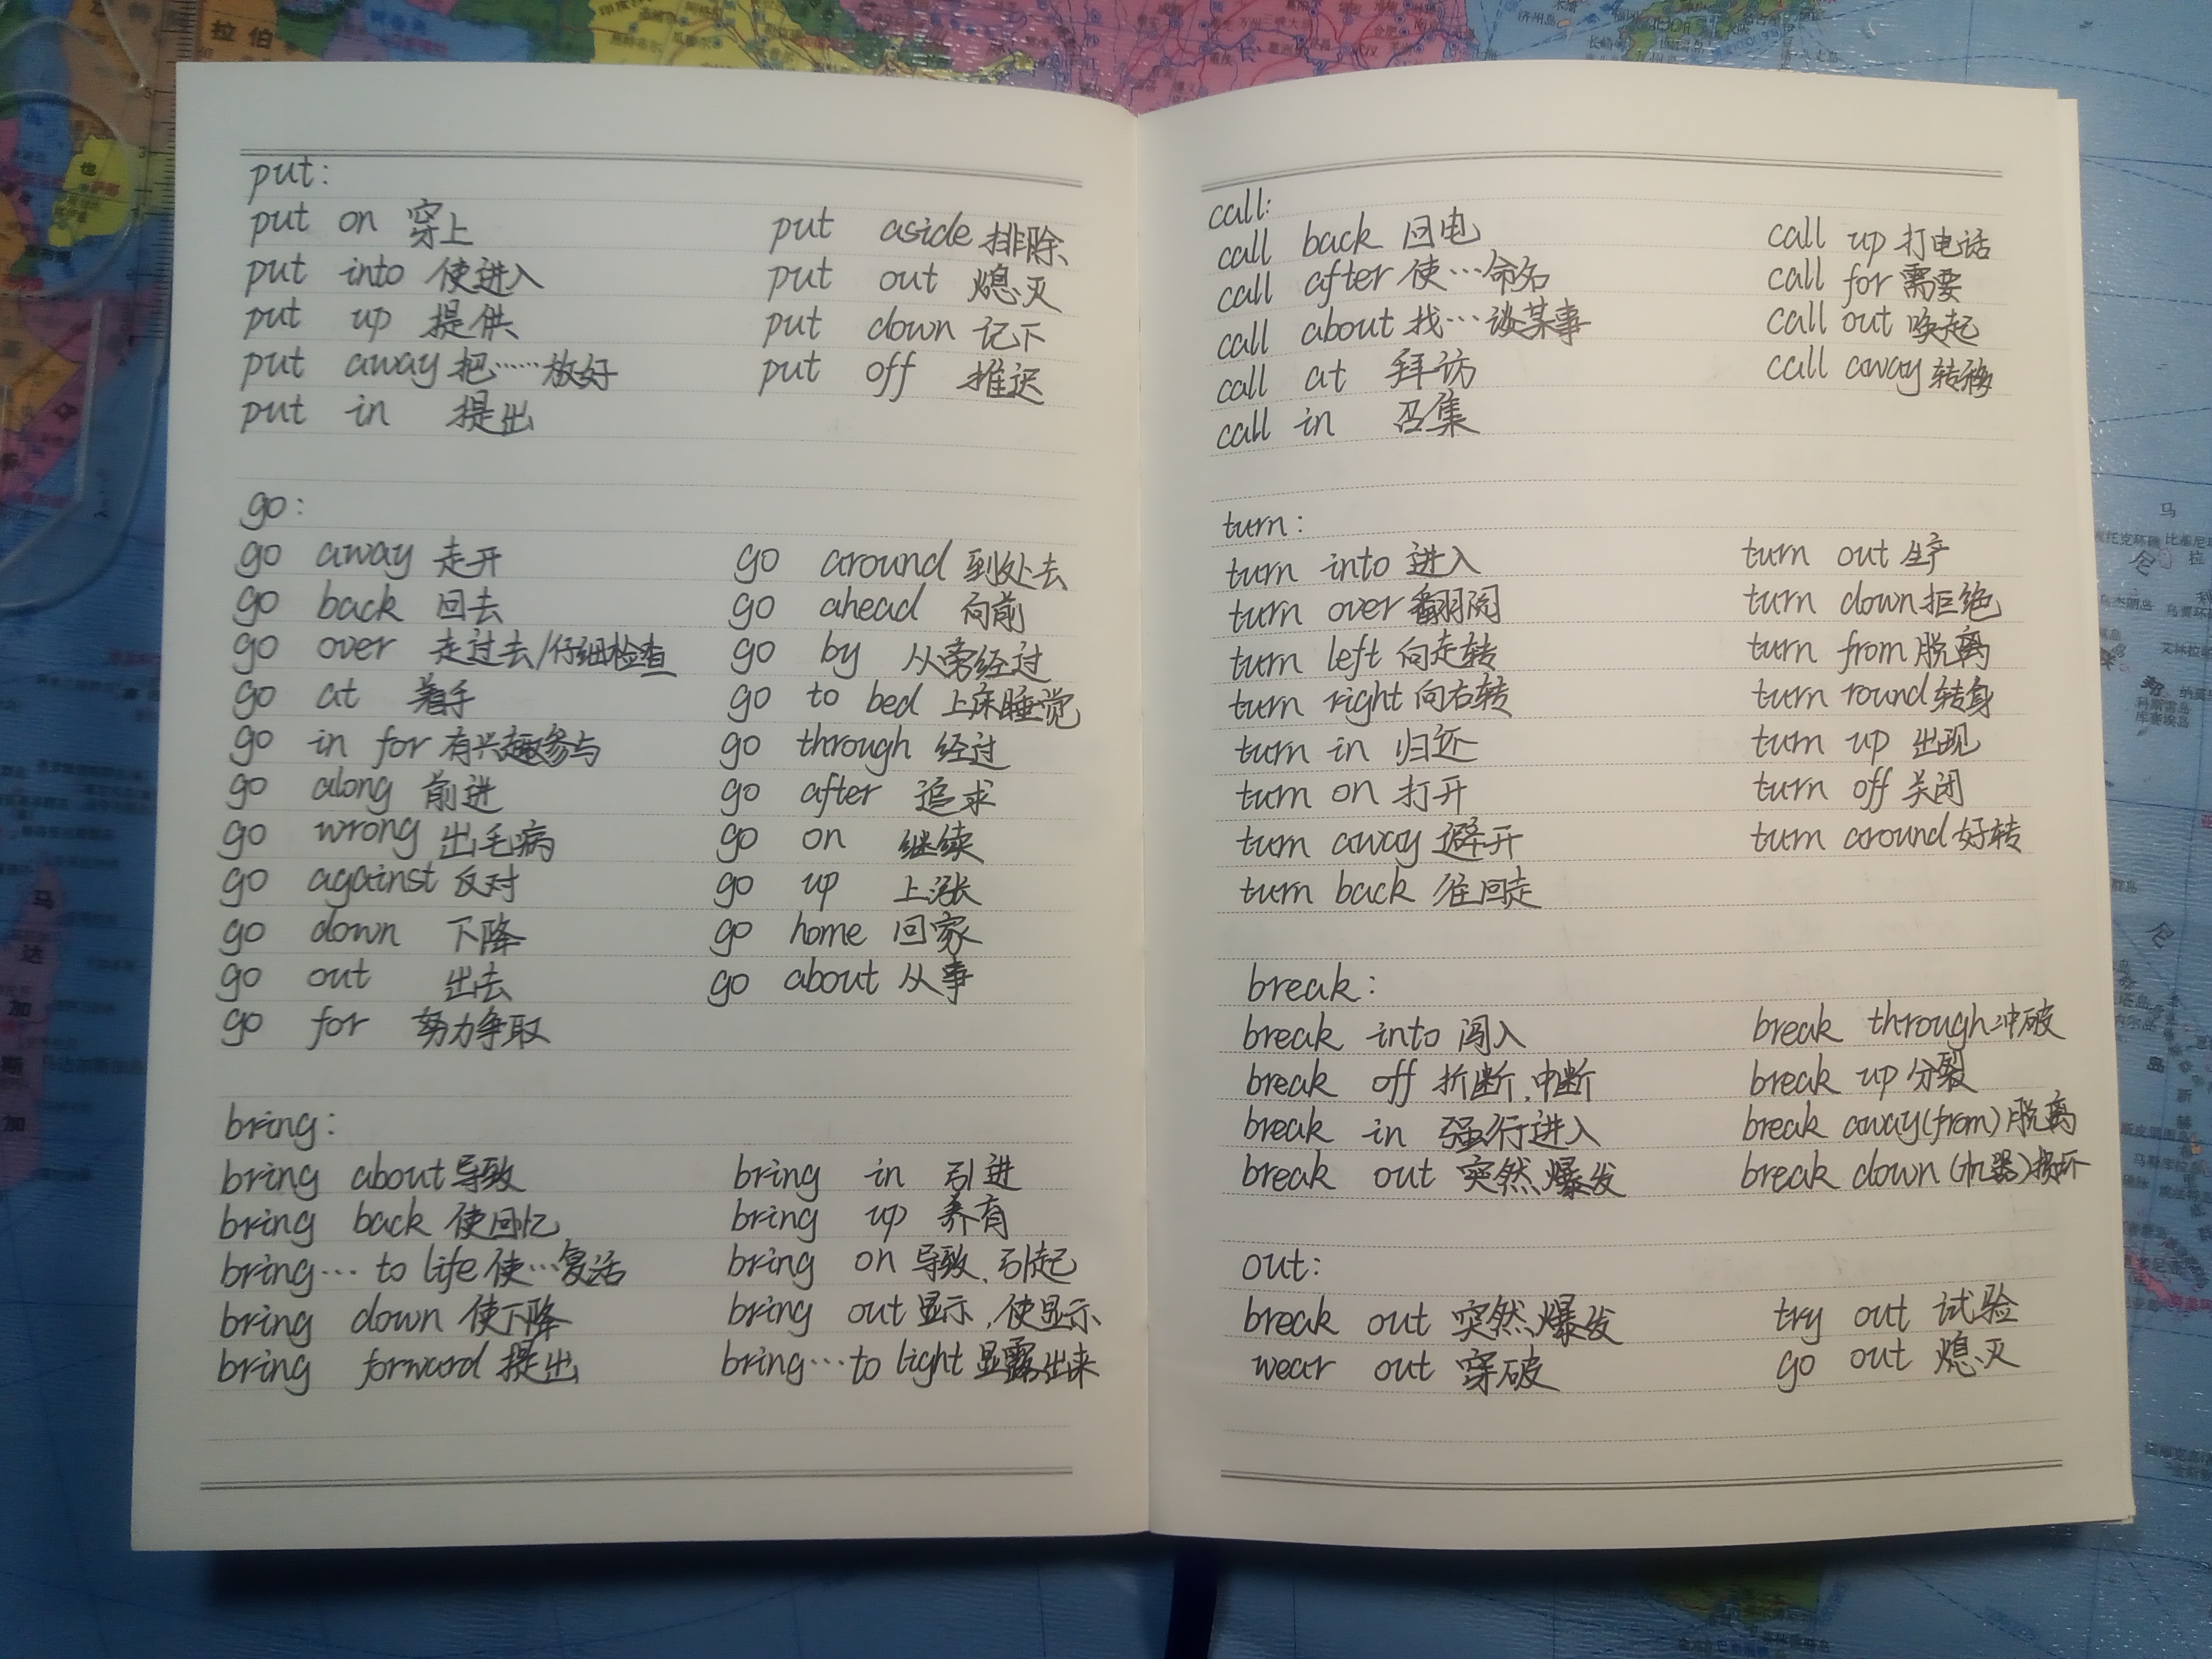 put:
put on 穿上 put aside 排除
put into 使进入 put out 熄灭
put up 提供 put down 记下
put away 把……放好 put off 推迟
put in 提出
go:
go away 走开 go around 到处去
go back 回去 go ahead 向前
go over 走过去/仔细检查 go by 从旁经过
go at 着手 go to bed 上床睡觉
go in for 有兴趣参与 go through 经过
go along 前进 go after 追求
go wrong 出毛病 go on 继续
go against 反对 go up 上涨
go down 下降 go home 回家
go out 出去 go about 从事
go for 努力争取
bring:
bring about 导致 bring in 引进
bring back 使回忆 bring up 养育
bring… to life 使…复活 bring on 导致、引起
bring down 使下降 bring out 显示,使显示
bring forward 提出 bring…to light 显露出来
call:
call back 回电 call up 打电话
call after 使…命名 call for 需要
call about 找…谈某事 call out 唤起
call at 拜访 call away 转移
call in 召集
turn:
turn into 进入 turn out 生产
turn over 翻阅 turn down 拒绝
turn left 向左转 turn from 脱离
turn right 向右转 turn round 转身
turn in 归还 turn up 出现
turn on 打开 turn off 关闭
turn away 避开 turn around 好转
turn back 往回走
break:
break into 闯入 break through 冲破
break off 折断、中断 break up 分裂
break in 强行进入 break away(from) 脱离
break out 突然爆发 break down (机器)损坏
out:
break out 突然爆发 try out 试验
wear out 穿破 go out 熄灭
拉伯
也
马
达
加
斯
加